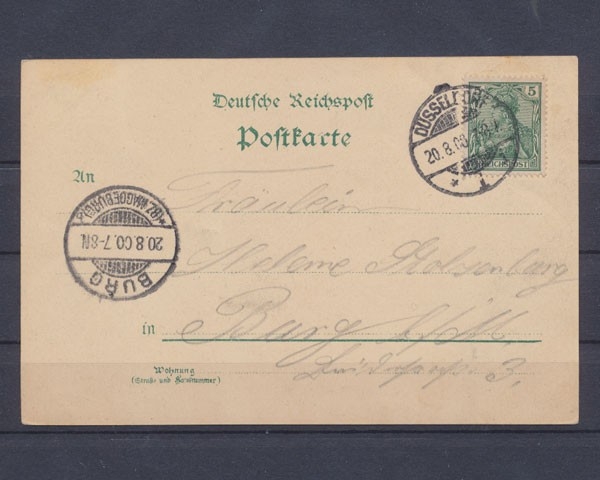 Deutsche Reichspost
5
DÜSSELDORF
20.8.00
REICHSPOST
Postkarte
An
Fräulein
BURG
20.8.00.7-8N.
(BZ. MAGDEBURG)
Helene Stolzenberg
in Burg b/M.
3.
Wohnung
(Straße und Hausnummer)